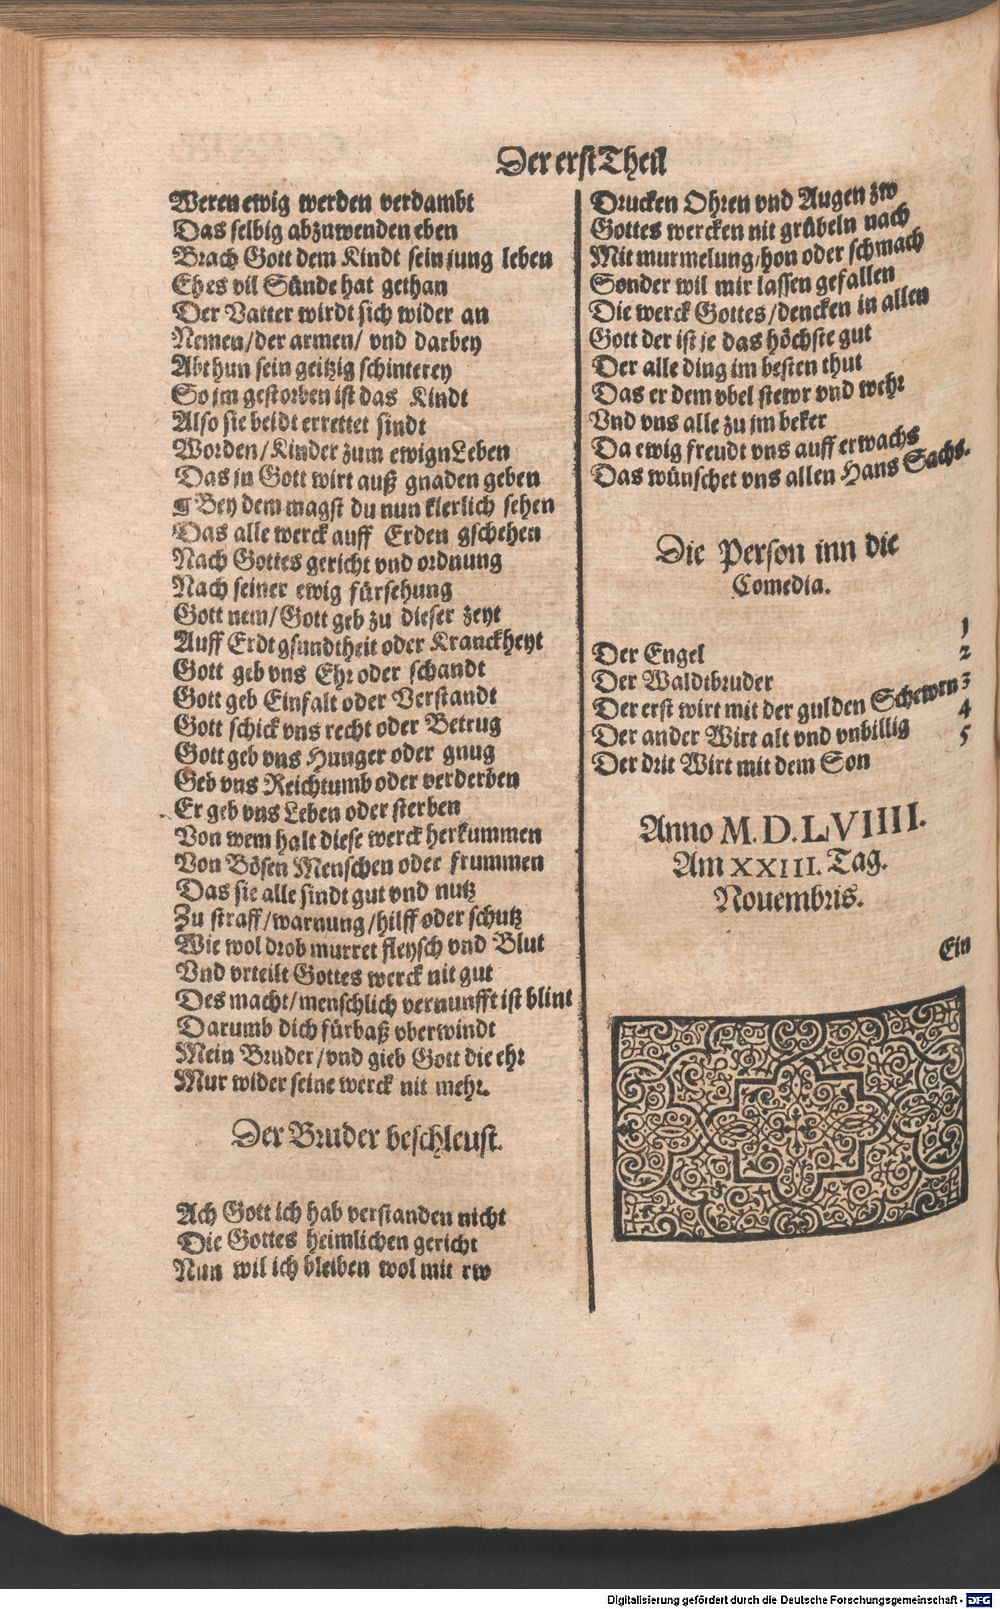 Der erst Theil
Weren ewig werden verdambt
Das selbig abzuwenden eben
Brach Gott dem Kindt sein jung leben
Eh es vil Sünde hat gethan
Der Vatter wirdt sich wider an
Nemen/der armen/ vnd darbey
Abthun sein geitzig schinterey
So jm gestorben ist das Kindt
Also sie beidt errettet sindt
Worden/Kinder zum ewign Leben
Das jn Gott wirt auß gnaden geben
¶ Bey dem magst du nun klerlich sehen
Das alle werck auff Erden gschehen
Nach Gottes gericht vnd ordnung
Nach seiner ewig fürsehung
Gott nem/Gott geb zu dieser zeyt
Auff Erdt gsundtheit oder Kranckheyt
Gott geb vns Ehr oder schandt
Gott geb Einfalt oder Verstandt
Gott schick vns recht oder Betrug
Gott geb vns Hunger oder gnug
Geb vns Reichtumb oder verderben
Er geb vns Leben oder sterben
Von wem halt diese werck herkummen
Von Bösen Menschen oder frummen
Das sie alle sindt gut vnd nutz
Zu straff/warnung/hilff oder schutz
Wie wol drob murret fleysch vnd Blut
Vnd vrteilt Gottes werck nit gut
Des macht/menschlich vernunfft ist blint
Darumb dich fürbaß vberwindt
Mein Bruder/vnd gieb Gott die ehr
Mur wider seine werck nit mehr.
Der Bruder beschleust.
Ach Gott ich hab verstanden nicht
Die Gottes heimlichen gericht
Nun wil ich bleiben wol mit rw
Drucken Ohren vnd Augen zw
Gottes wercken nit grübeln nach
Mit murmelung/hon oder schmach
Sonder wil mir lassen gefallen
Die werck Gottes/dencken in allen
Gott der ist je das höchste gut
Der alle ding im besten thut
Das er dem vbel stewr vnd wehr
Vnd vns alle zu jm beker
Da ewig freudt vns auff erwachs
Das wünschet vns allen Hans Sachs.
Die Person inn die
Comedia.
Der Engel 1
Der Waldtbruder 2
Der erst wirt mit der gulden Schewrn 3
Der ander Wirt alt vnd vnbillig 4
Der drit Wirt mit dem Son 5
Anno M.D.LVIIII.
Am XXIII. Tag.
Nouembris.
Ein
Digitalisierung gefördert durch die Deutsche Forschungsgemeinschaft - DFG